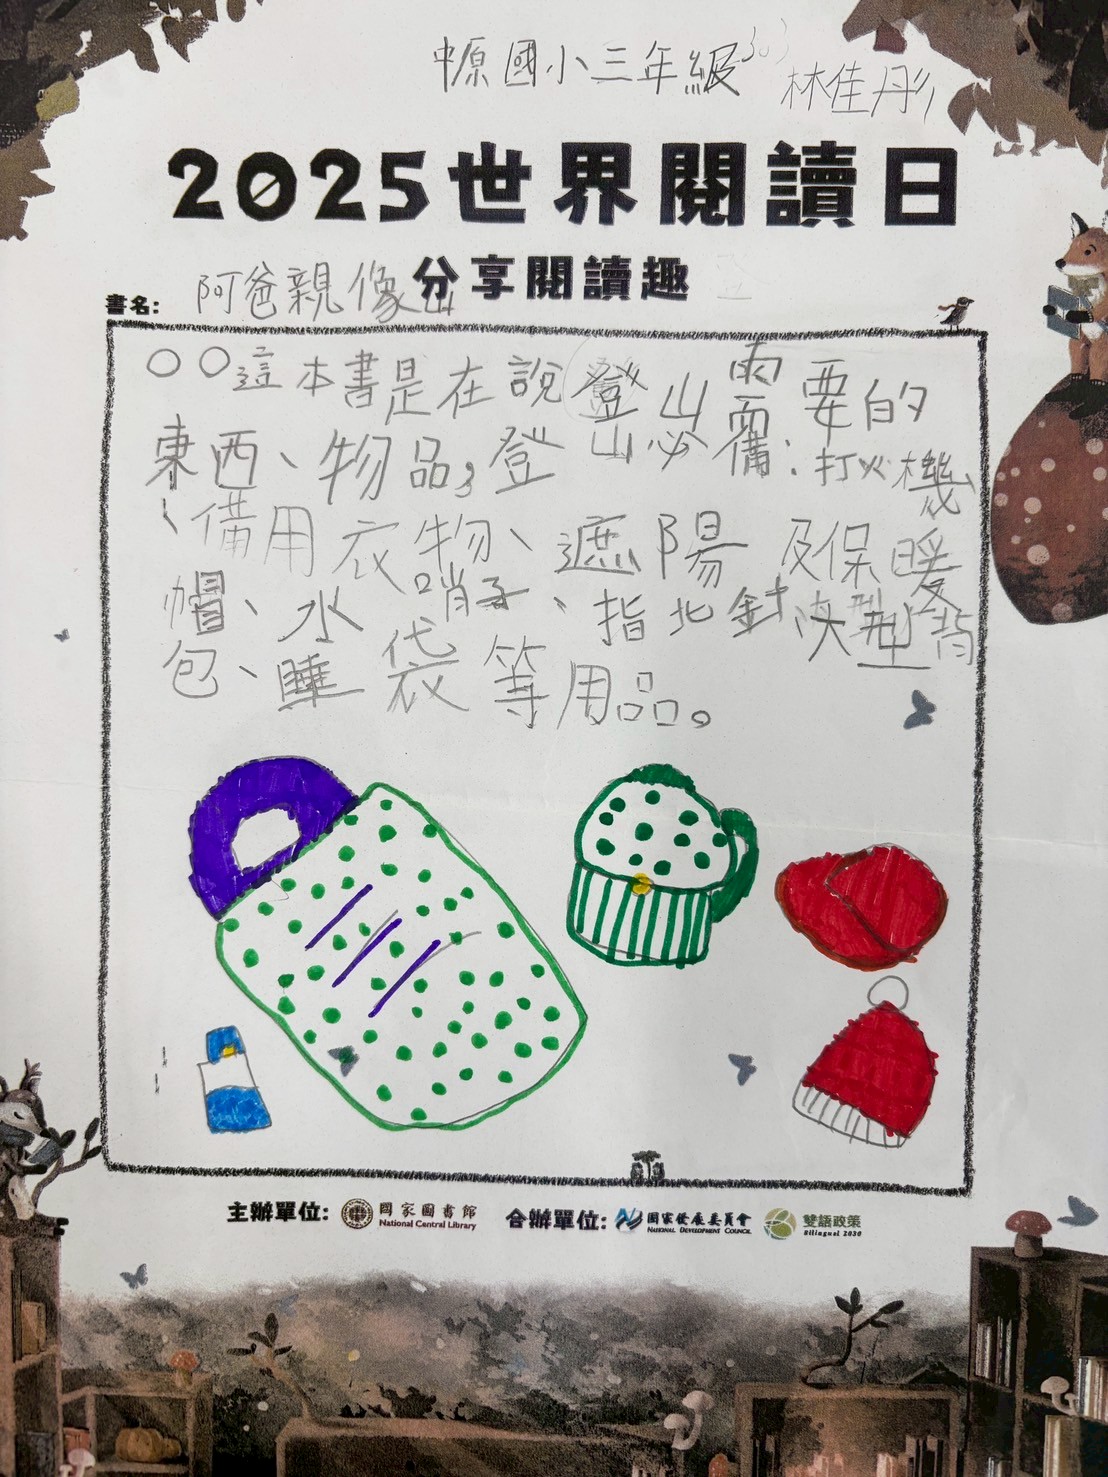 中原國小三年級303
林佳彤
2025世界閱讀日
分享閱讀趣
書名: 阿爸親像山
○○這本書是在說登山需要的
東西、物品,登山必備:打火機
、備用衣物、遮陽及保暖
帽、水、哨子、指北針、浹型背
包、睡袋等用品。
主辦單位: 國家圖書館
National Central Library
合辦單位: 國家發展委員會
NATIONAL DEVELOPMENT COUNCIL
雙語政策
Bilingual 2030